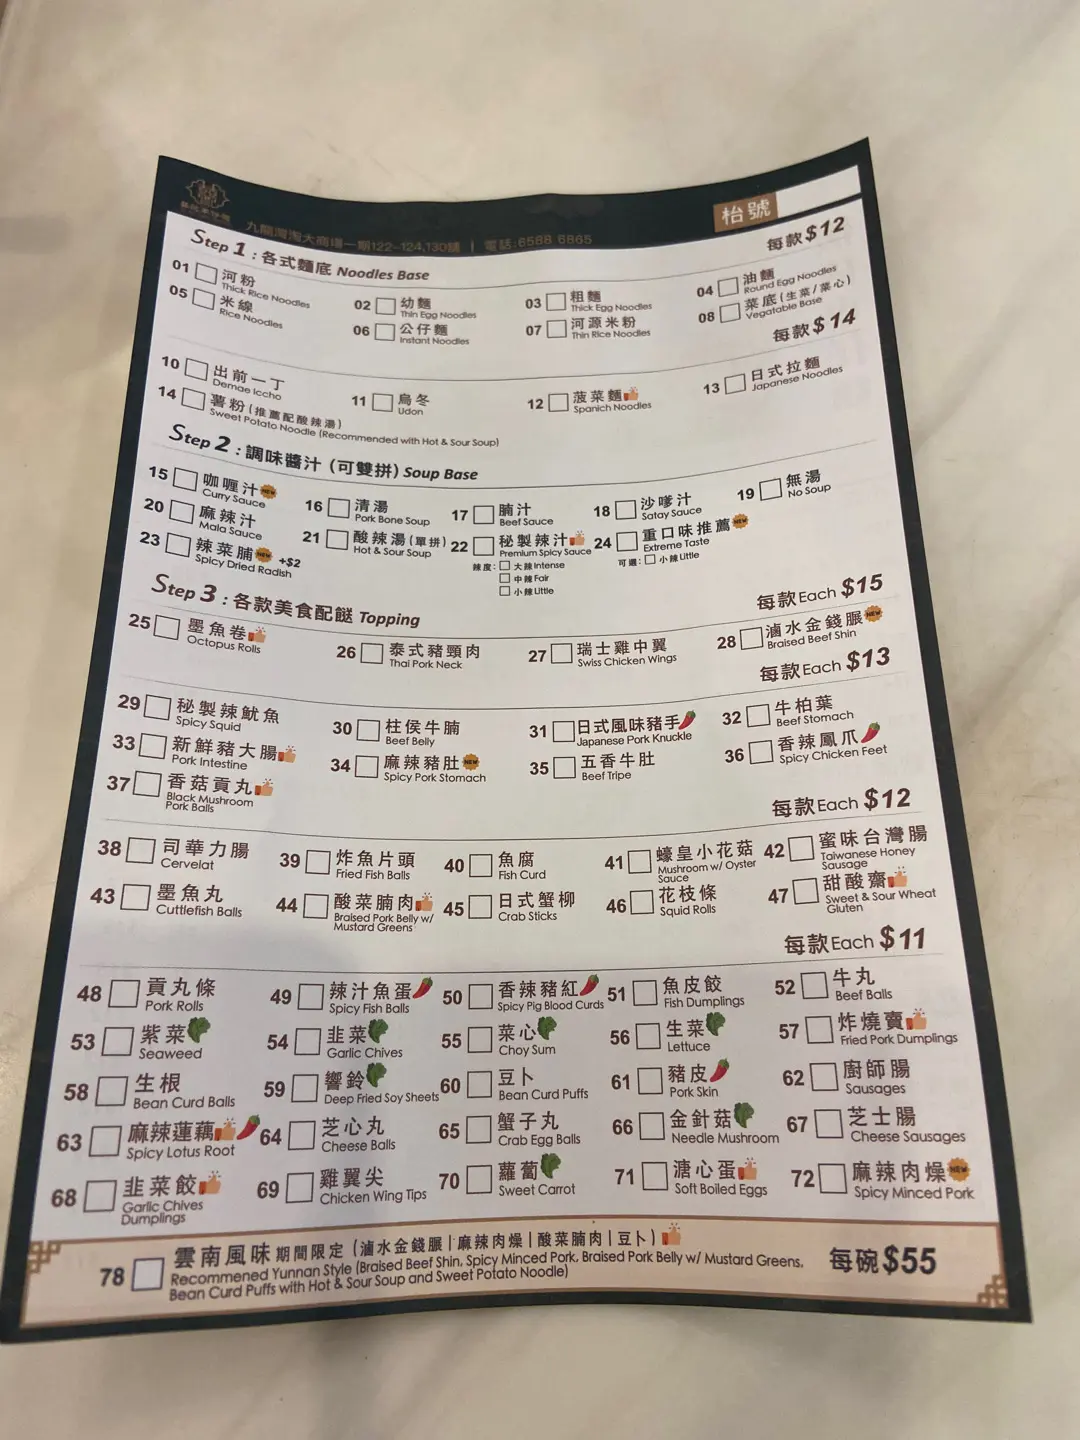 枱號
九龍灣淘大商場一期122-124,130舖 | 電話:6588 6865
Step 1 : 各式麵底 Noodles Base
每款 $12
01 河粉 Thick Rice Noodles
02 幼麵 Thin Egg Noodles
03 粗麵 Thick Egg Noodles
04 油麵 Round Egg Noodles
05 米線 Rice Noodles
06 公仔麵 Instant Noodles
07 河源米粉 Thin Rice Noodles
08 菜底 (生菜/菜心) Vegatable Base
每款 $14
10 出前一丁 Demae Iccho
11 烏冬 Udon
12 菠菜麵 Spanich Noodles
13 日式拉麵 Japanese Noodles
14 薯粉 (推薦配酸辣湯) Sweet Potato Noodle (Recommended with Hot & Sour Soup)
Step 2 : 調味醬汁 (可雙拼) Soup Base
15 咖喱汁 NEW Curry Sauce
16 清湯 Pork Bone Soup
17 腩汁 Beef Sauce
18 沙嗲汁 Satay Sauce
19 無湯 No Soup
20 麻辣汁 Mala Sauce
21 酸辣湯 (單拼) Hot & Sour Soup
22 秘製辣汁 Premium Spicy Sauce
辣度: 大辣 Intense
中辣 Fair
小辣 Little
24 重口味推薦 NEW Extreme Taste
可選: 小辣 Little
23 辣菜脯 NEW +$2 Spicy Dried Radish
Step 3 : 各款美食配餸 Topping
每款Each $15
25 墨魚卷 Octopus Rolls
26 泰式豬頸肉 Thai Pork Neck
27 瑞士雞中翼 Swiss Chicken Wings
28 滷水金錢𦟌 NEW Braised Beef Shin
每款Each $13
29 秘製辣魷魚 Spicy Squid
30 柱侯牛腩 Beef Belly
31 日式風味豬手 Japanese Pork Knuckle
32 牛柏葉 Beef Stomach
33 新鮮豬大腸 Pork Intestine
34 麻辣豬肚 NEW Spicy Pork Stomach
35 五香牛肚 Beef Tripe
36 香辣鳳爪 Spicy Chicken Feet
37 香菇貢丸 Black Mushroom Pork Balls
每款Each $12
38 司華力腸 Cervelat
39 炸魚片頭 Fried Fish Balls
40 魚腐 Fish Curd
41 蠔皇小花菇 Mushroom w/ Oyster Sauce
42 蜜味台灣腸 Taiwanese Honey Sausage
43 墨魚丸 Cuttlefish Balls
44 酸菜腩肉 Braised Pork Belly w/ Mustard Greens
45 日式蟹柳 Crab Sticks
46 花枝條 Squid Rolls
47 甜酸齋 Sweet & Sour Wheat Gluten
每款Each $11
48 貢丸條 Pork Rolls
49 辣汁魚蛋 Spicy Fish Balls
50 香辣豬紅 Spicy Pig Blood Curds
51 魚皮餃 Fish Dumplings
52 牛丸 Beef Balls
53 紫菜 Seaweed
54 韭菜 Garlic Chives
55 菜心 Choy Sum
56 生菜 Lettuce
57 炸燒賣 Fried Pork Dumplings
58 生根 Bean Curd Balls
59 響鈴 Deep Fried Soy Sheets
60 豆卜 Bean Curd Puffs
61 豬皮 Pork Skin
62 廚師腸 Sausages
63 麻辣蓮藕 Spicy Lotus Root
64 芝心丸 Cheese Balls
65 蟹子丸 Crab Egg Balls
66 金針菇 Needle Mushroom
67 芝士腸 Cheese Sausages
68 韭菜餃 Garlic Chives Dumplings
69 雞翼尖 Chicken Wing Tips
70 蘿蔔 Sweet Carrot
71 溏心蛋 Soft Boiled Eggs
72 麻辣肉燥 NEW Spicy Minced Pork
78 雲南風味 期間限定 (滷水金錢𦟌 | 麻辣肉燥 | 酸菜腩肉 | 豆卜)
Recommened Yunnan Style (Braised Beef Shin, Spicy Minced Pork, Braised Pork Belly w/ Mustard Greens,
Bean Curd Puffs with Hot & Sour Soup and Sweet Potato Noodle)
每碗 $55